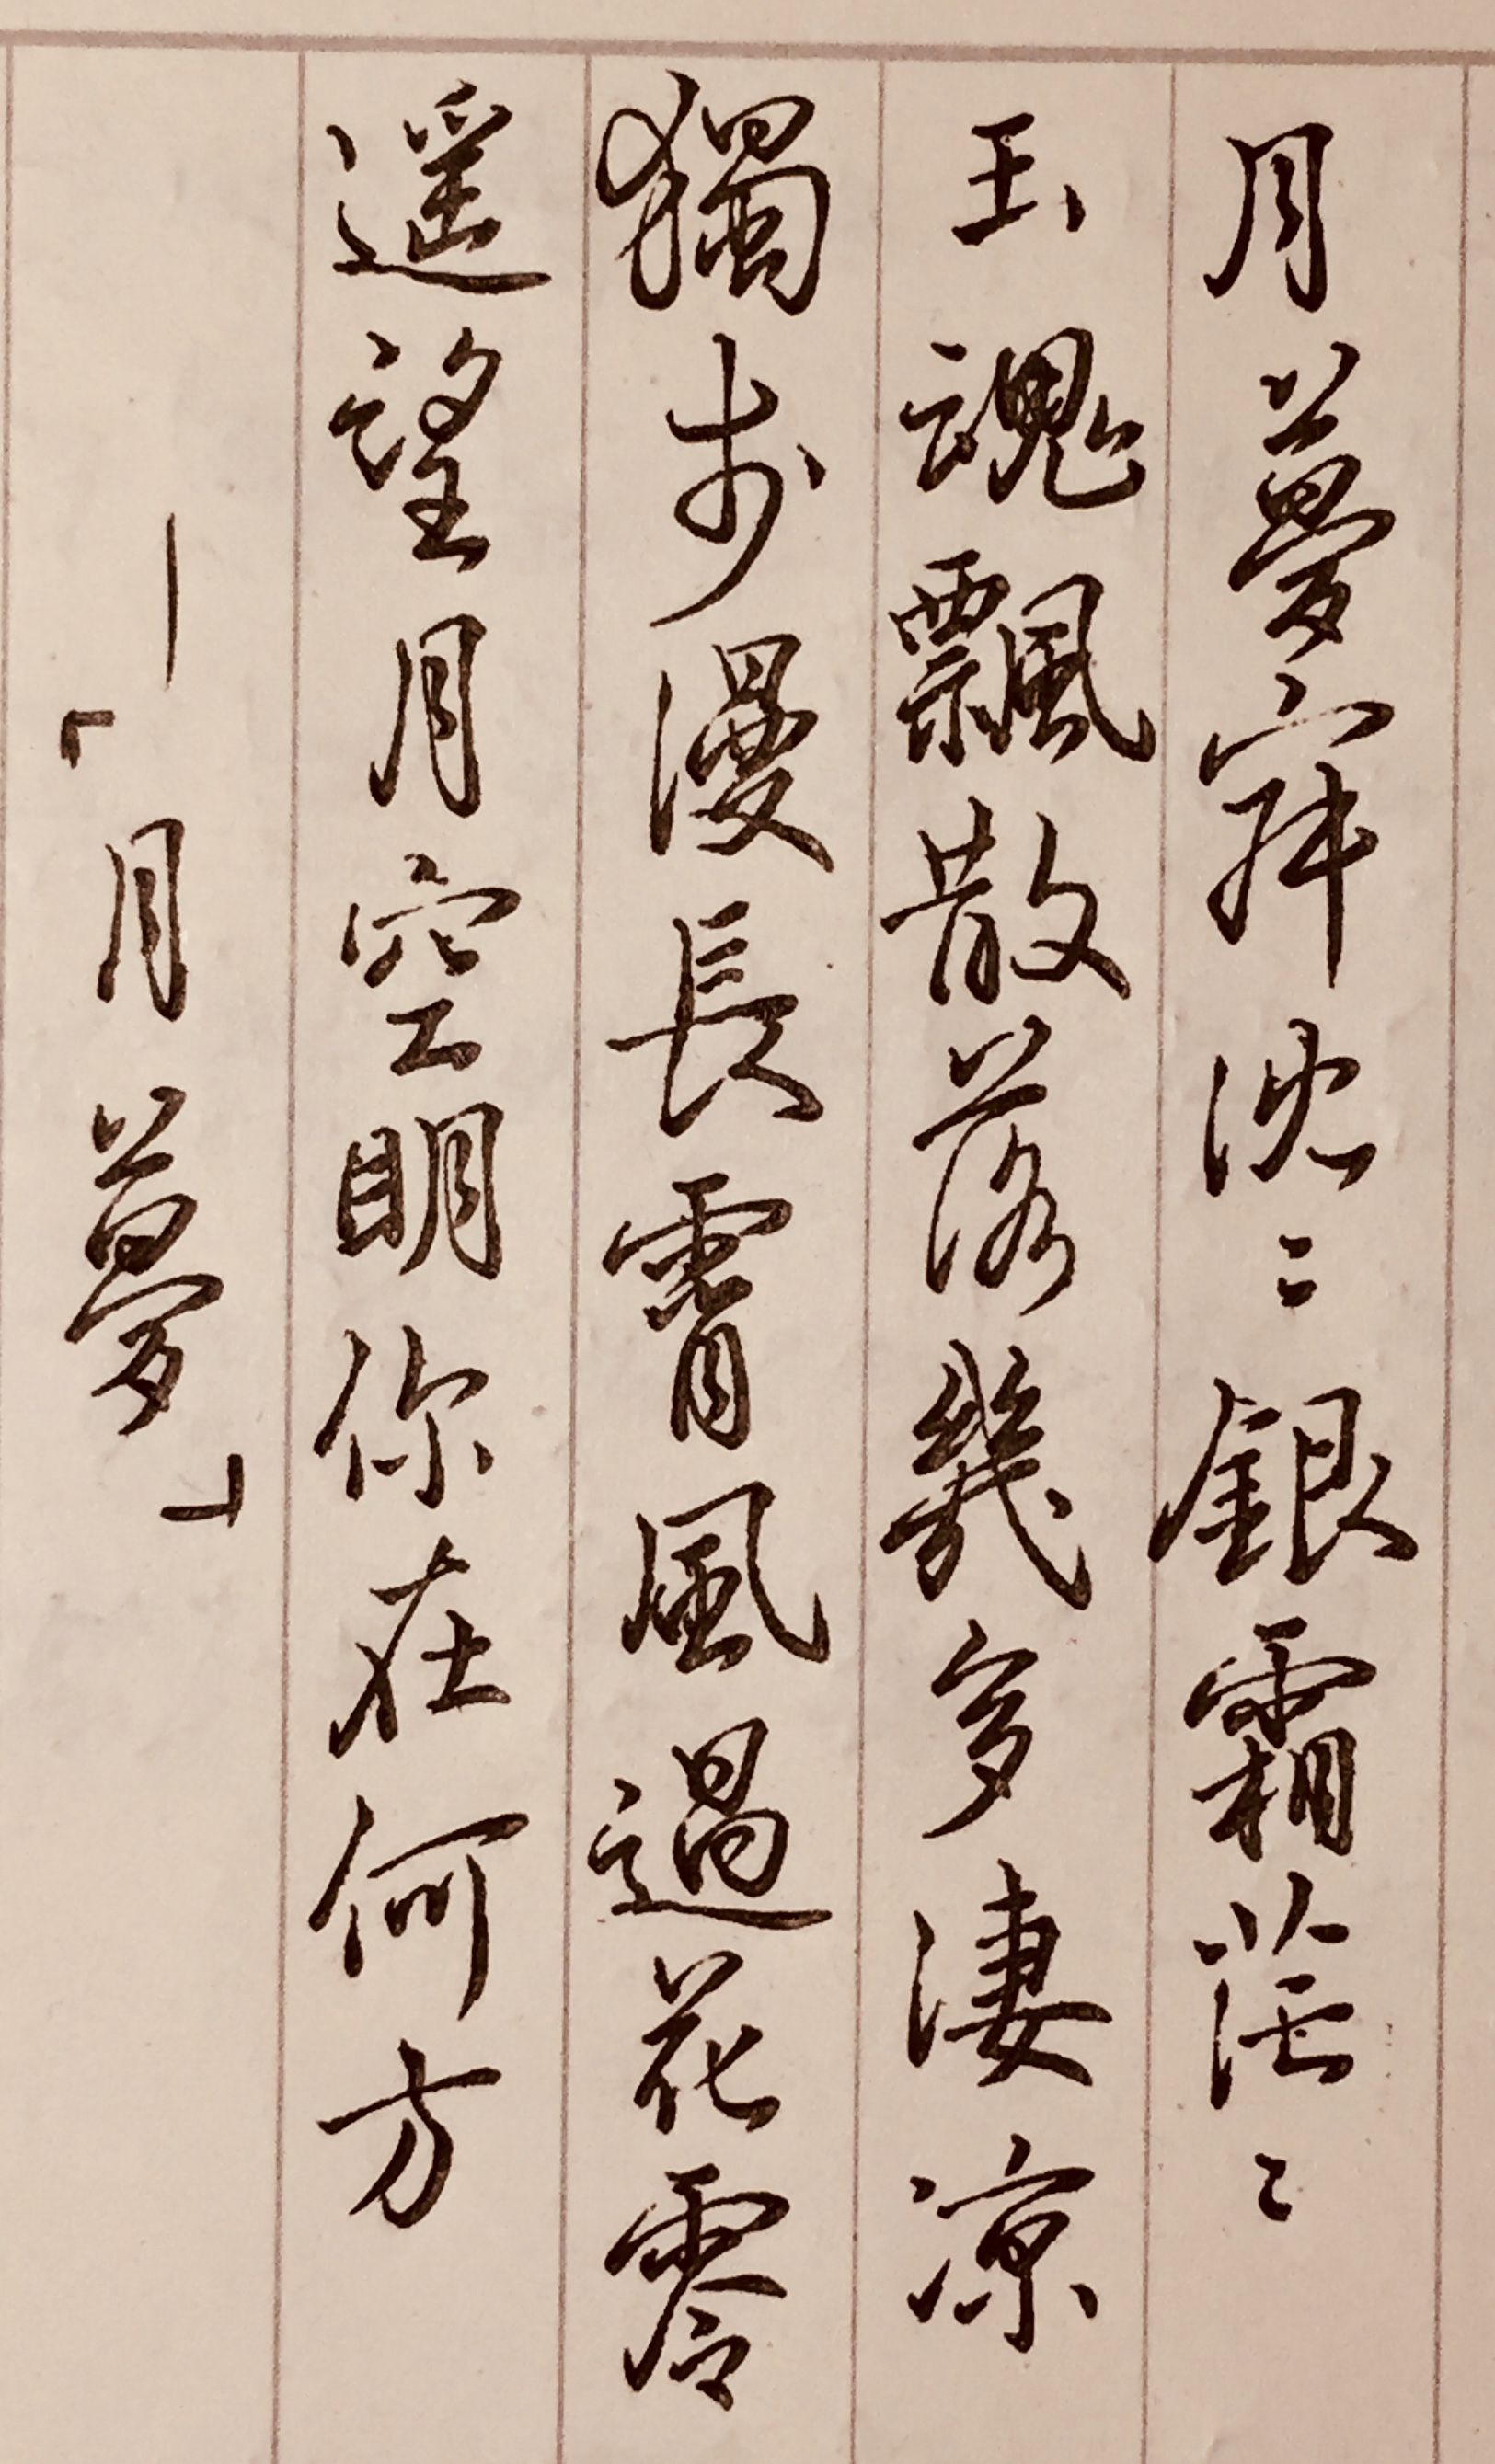 月夢寂沈〻銀霜茫〻
玉魂飄散落幾多淒凉
獨步漫長霄風過花零
遙望月空明你在何方
—「月夢」